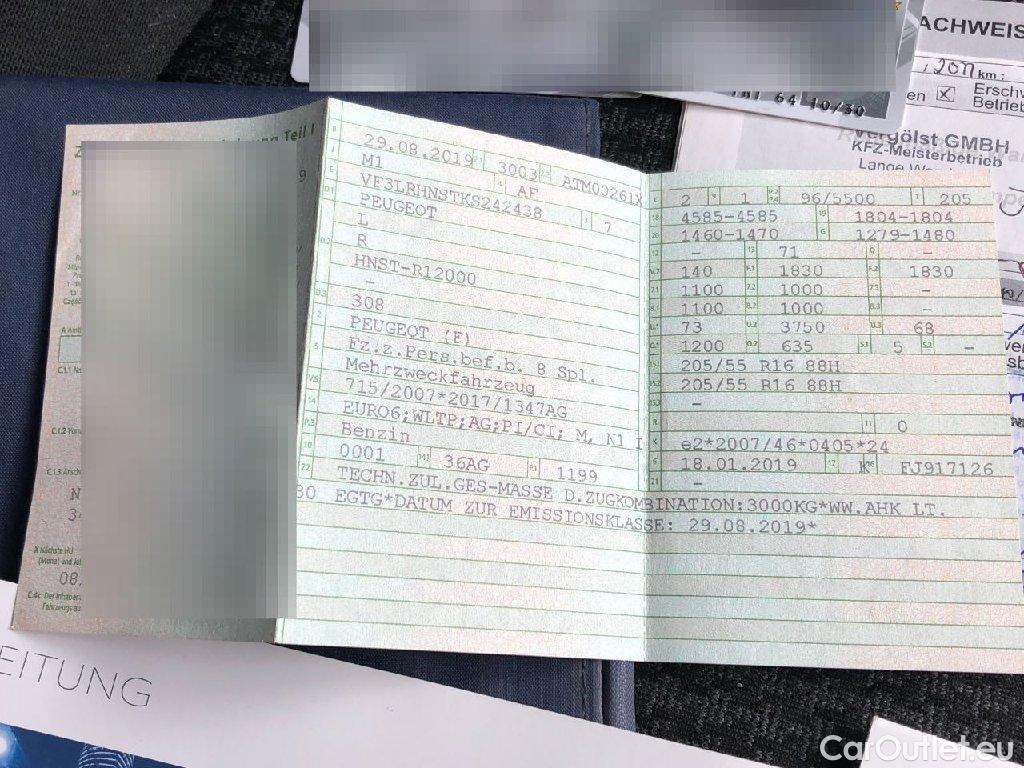 ACHWEIS
2011 km:
en X Erschw
Betrieb
Vergölst GMBH
KFZ-Meisterbetrieb
Teil I
29.08.2019 3003 ATM00261X
M1 AF
VF3LRHNSTKS242438 7
PEUGEOT
L
R
HNST-R12000
–
308
PEUGEOT (F)
Fz.z.Pers.bef.b. 8 Spl.
Mehrzweckfahrzeug
715/2007*2017/1347AG
EURO6;WLTP;AG;PI/CI; M, N1 I
Benzin
0001 36AG 1199
2 1 96/5500 205
4585-4585 1804-1804
1460-1470 1279-1480
– 71 –
140 1830 1830
1100 1000 –
1100 1000 –
73 3750 68
1200 635 5 –
205/55 R16 88H
205/55 R16 88H
–
0
e2*2007/46*0405*24
18.01.2019 K FJ917126
–
TECHN.ZUL.GES-MASSE D.ZUGKOMBINATION:3000KG*WW.AHK LT.
EGTG*DATUM ZUR EMISSIONSKLASSE: 29.08.2019*
30
08.
EITUNG
CarOutlet.eu